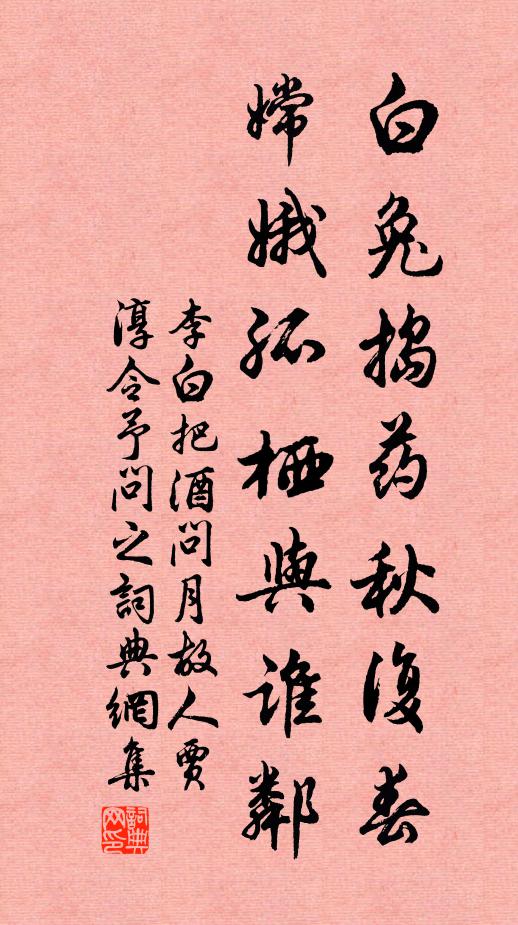 白兔搗药秋復春
嫦娥孤栖與誰鄰
李白把酒問月故人賈
淳令予問之詞典網集
詞典网印